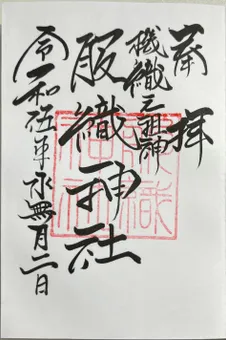 奉拝
機織之祖神
服織神社
令和伍年水無月二日
服織神社